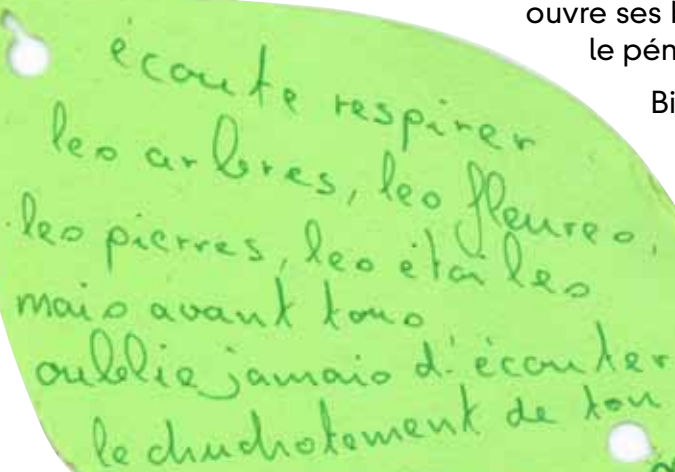 ouvre ses
le pén
Bi
écoute respirer
les arbres, les fleures,
les pierres, les étoiles
mais avant tous
oublie jamais d'écouter
le chuchotement de ton